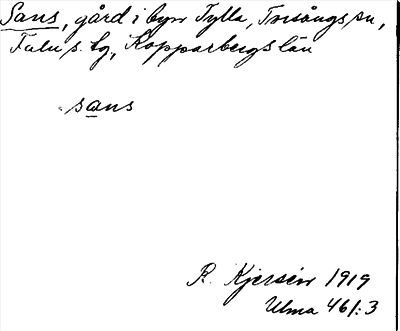 Sans, gård i byn Tylla, Torsångs sn,
Falu s. tg, Kopparbergs län
sans
R. Kjersén 1919
Ulma 461:3